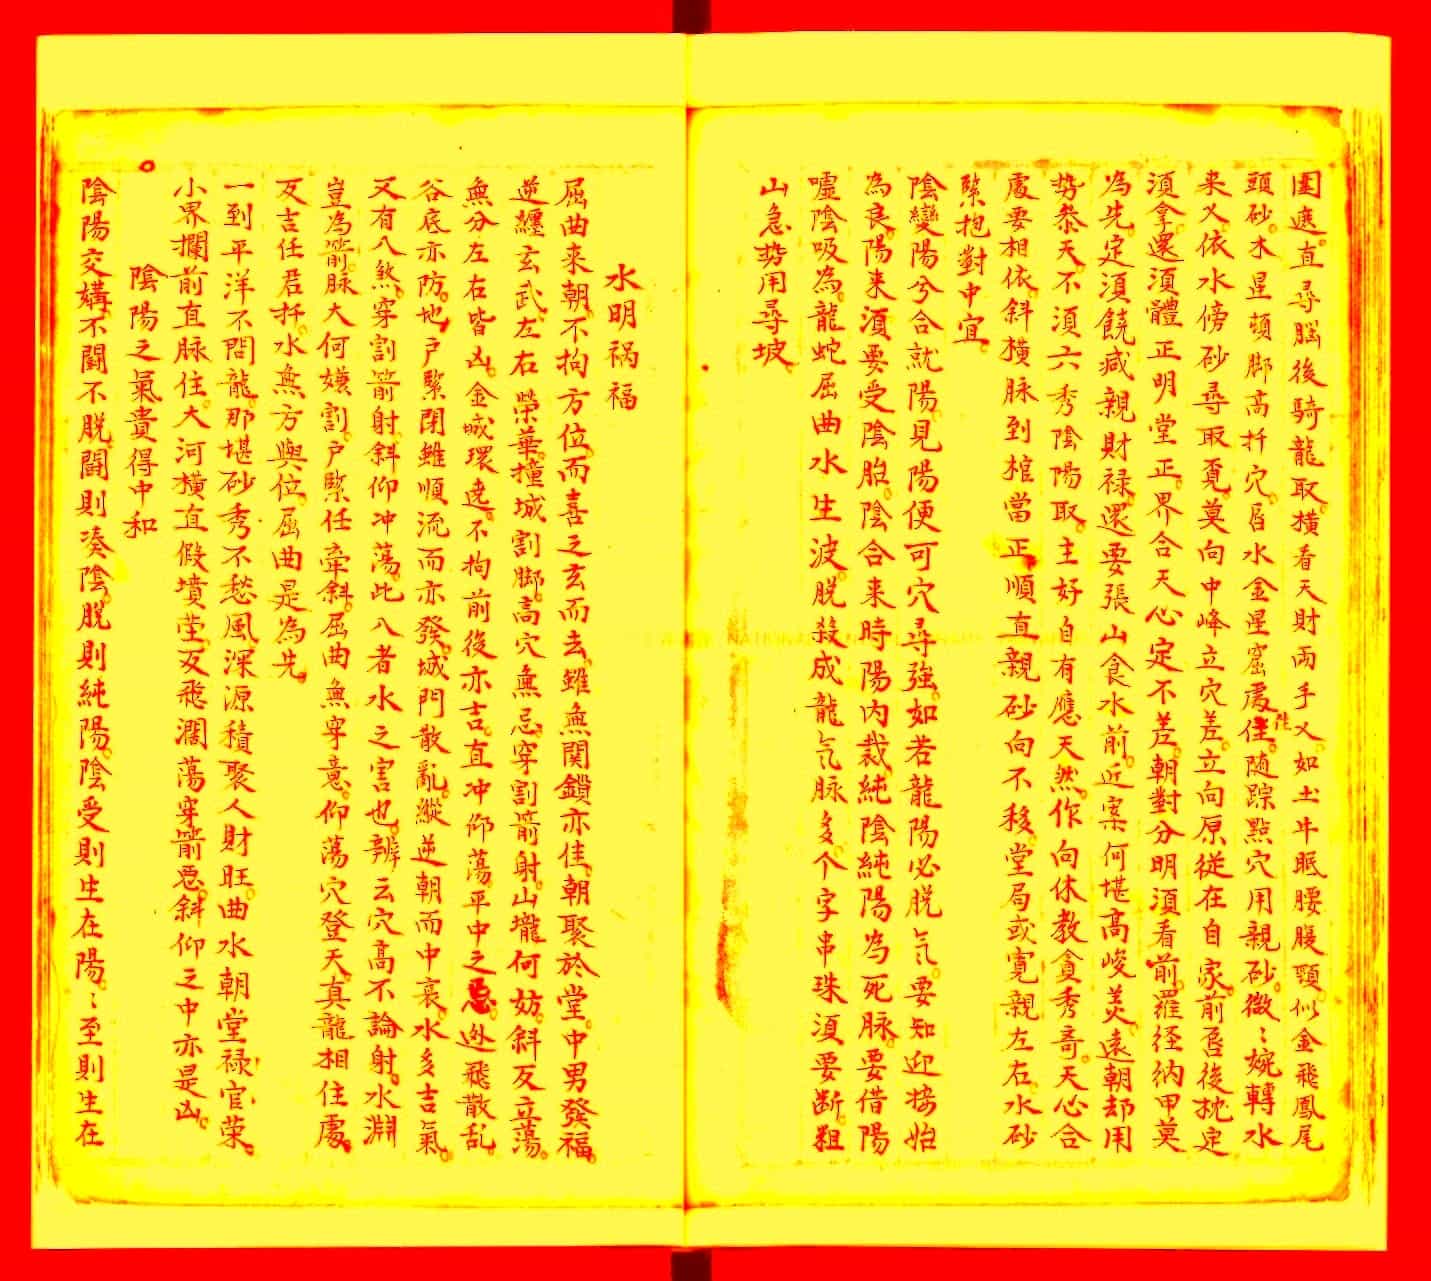 圍遮直尋腦後騎龍取橫看天財兩手乂如土牛眠腰腹顋似金飛鳳尾
頭砂木星頓脚高扦穴唇水金星窟處佳隨踪點穴用親砂微〻婉轉水
来乂依水傍砂尋取覔莫向中峰立穴差立向原従在自家前唇後枕定
湏拿還湏體正明堂正界合天心定不差朝對分明湏看前羅経納甲莫
為先定湏饒减親財禄還要張山食水前近案何堪高峻美遠朝却用
勢叅天不湏六秀陰陽取主好自有應天然作向休教貪秀竒天心合
處要相依斜橫脉到棺當正順直親砂向不移堂局或寛親左右水砂
緊抱對中宜
陰變陽兮合就陽見陽便可穴尋強如若龍陽必脱气要知迎接始
為良陽来湏要受陰胎陰合来時陽内裁純陰純陽為死脉要借陽
噓陰吸為龍蛇屈曲水生波脱殺成龍气脉多个字串珠湏要断粗
山急勢用尋坡
水明祸福
屈曲来朝不拘方位而喜之玄而去雖無関鎖亦佳朝聚於堂中男發福
逆纏玄武左右榮華撞城割脚高穴無忌穿割箭射山壠何妨斜反立蕩
無分左右皆凶金城環遶不拘前後亦吉直冲仰蕩平中之忌迯飛散乱
谷底亦防地户緊閉雖順流而亦發城門散亂縱逆朝而中衰水多吉氣
又有八煞穿割箭射斜仰冲蕩此八者水之害也辨云穴高不論射水淵
豈為箭脉大何嫌割户緊任牽斜屈曲無穿意仰蕩穴登天真龍相住處
反吉任君扦水無方與位屈曲是為先
一到平洋不問龍那堪砂秀不愁風深源積聚人財旺曲水朝堂禄官荣
小界攔前直脉住大河横直假墳塋反飛濶蕩穿箭惡斜仰之中亦是凶
陰陽之氣貴得中和
陰陽交媾不鬬不脱鬬則凑陰脱則純陽陰受則生在陽〻至則生在